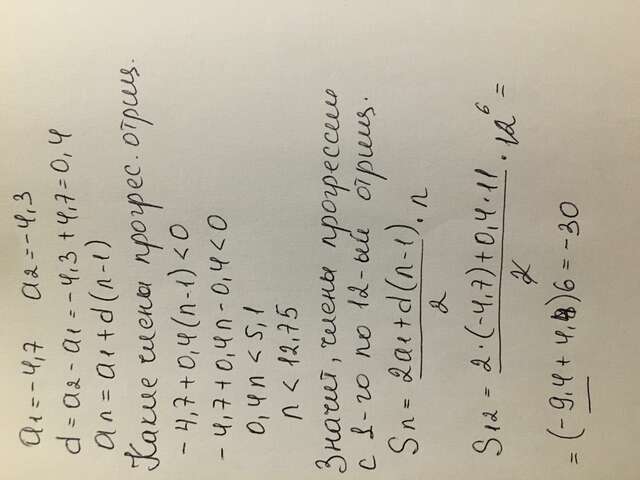 a1 = -4,7 a2 = -4,3
d = a2 - a1 = -4,3 + 4,7 = 0,4
an = a1 + d(n-1)
Какие члены прогрес. отриц.
-4,7 + 0,4(n-1) < 0
-4,7 + 0,4n - 0,4 < 0
0,4n < 5,1
n < 12,75
Значит, члены прогрессии
с 1-го по 12-ый отриц.
Sn = (2a1 + d(n-1))/2 · n
S12 = (2·(-4,7) + 0,4·11)/2 · 12 6 =
= (-9,4 + 4,4)6 = -30